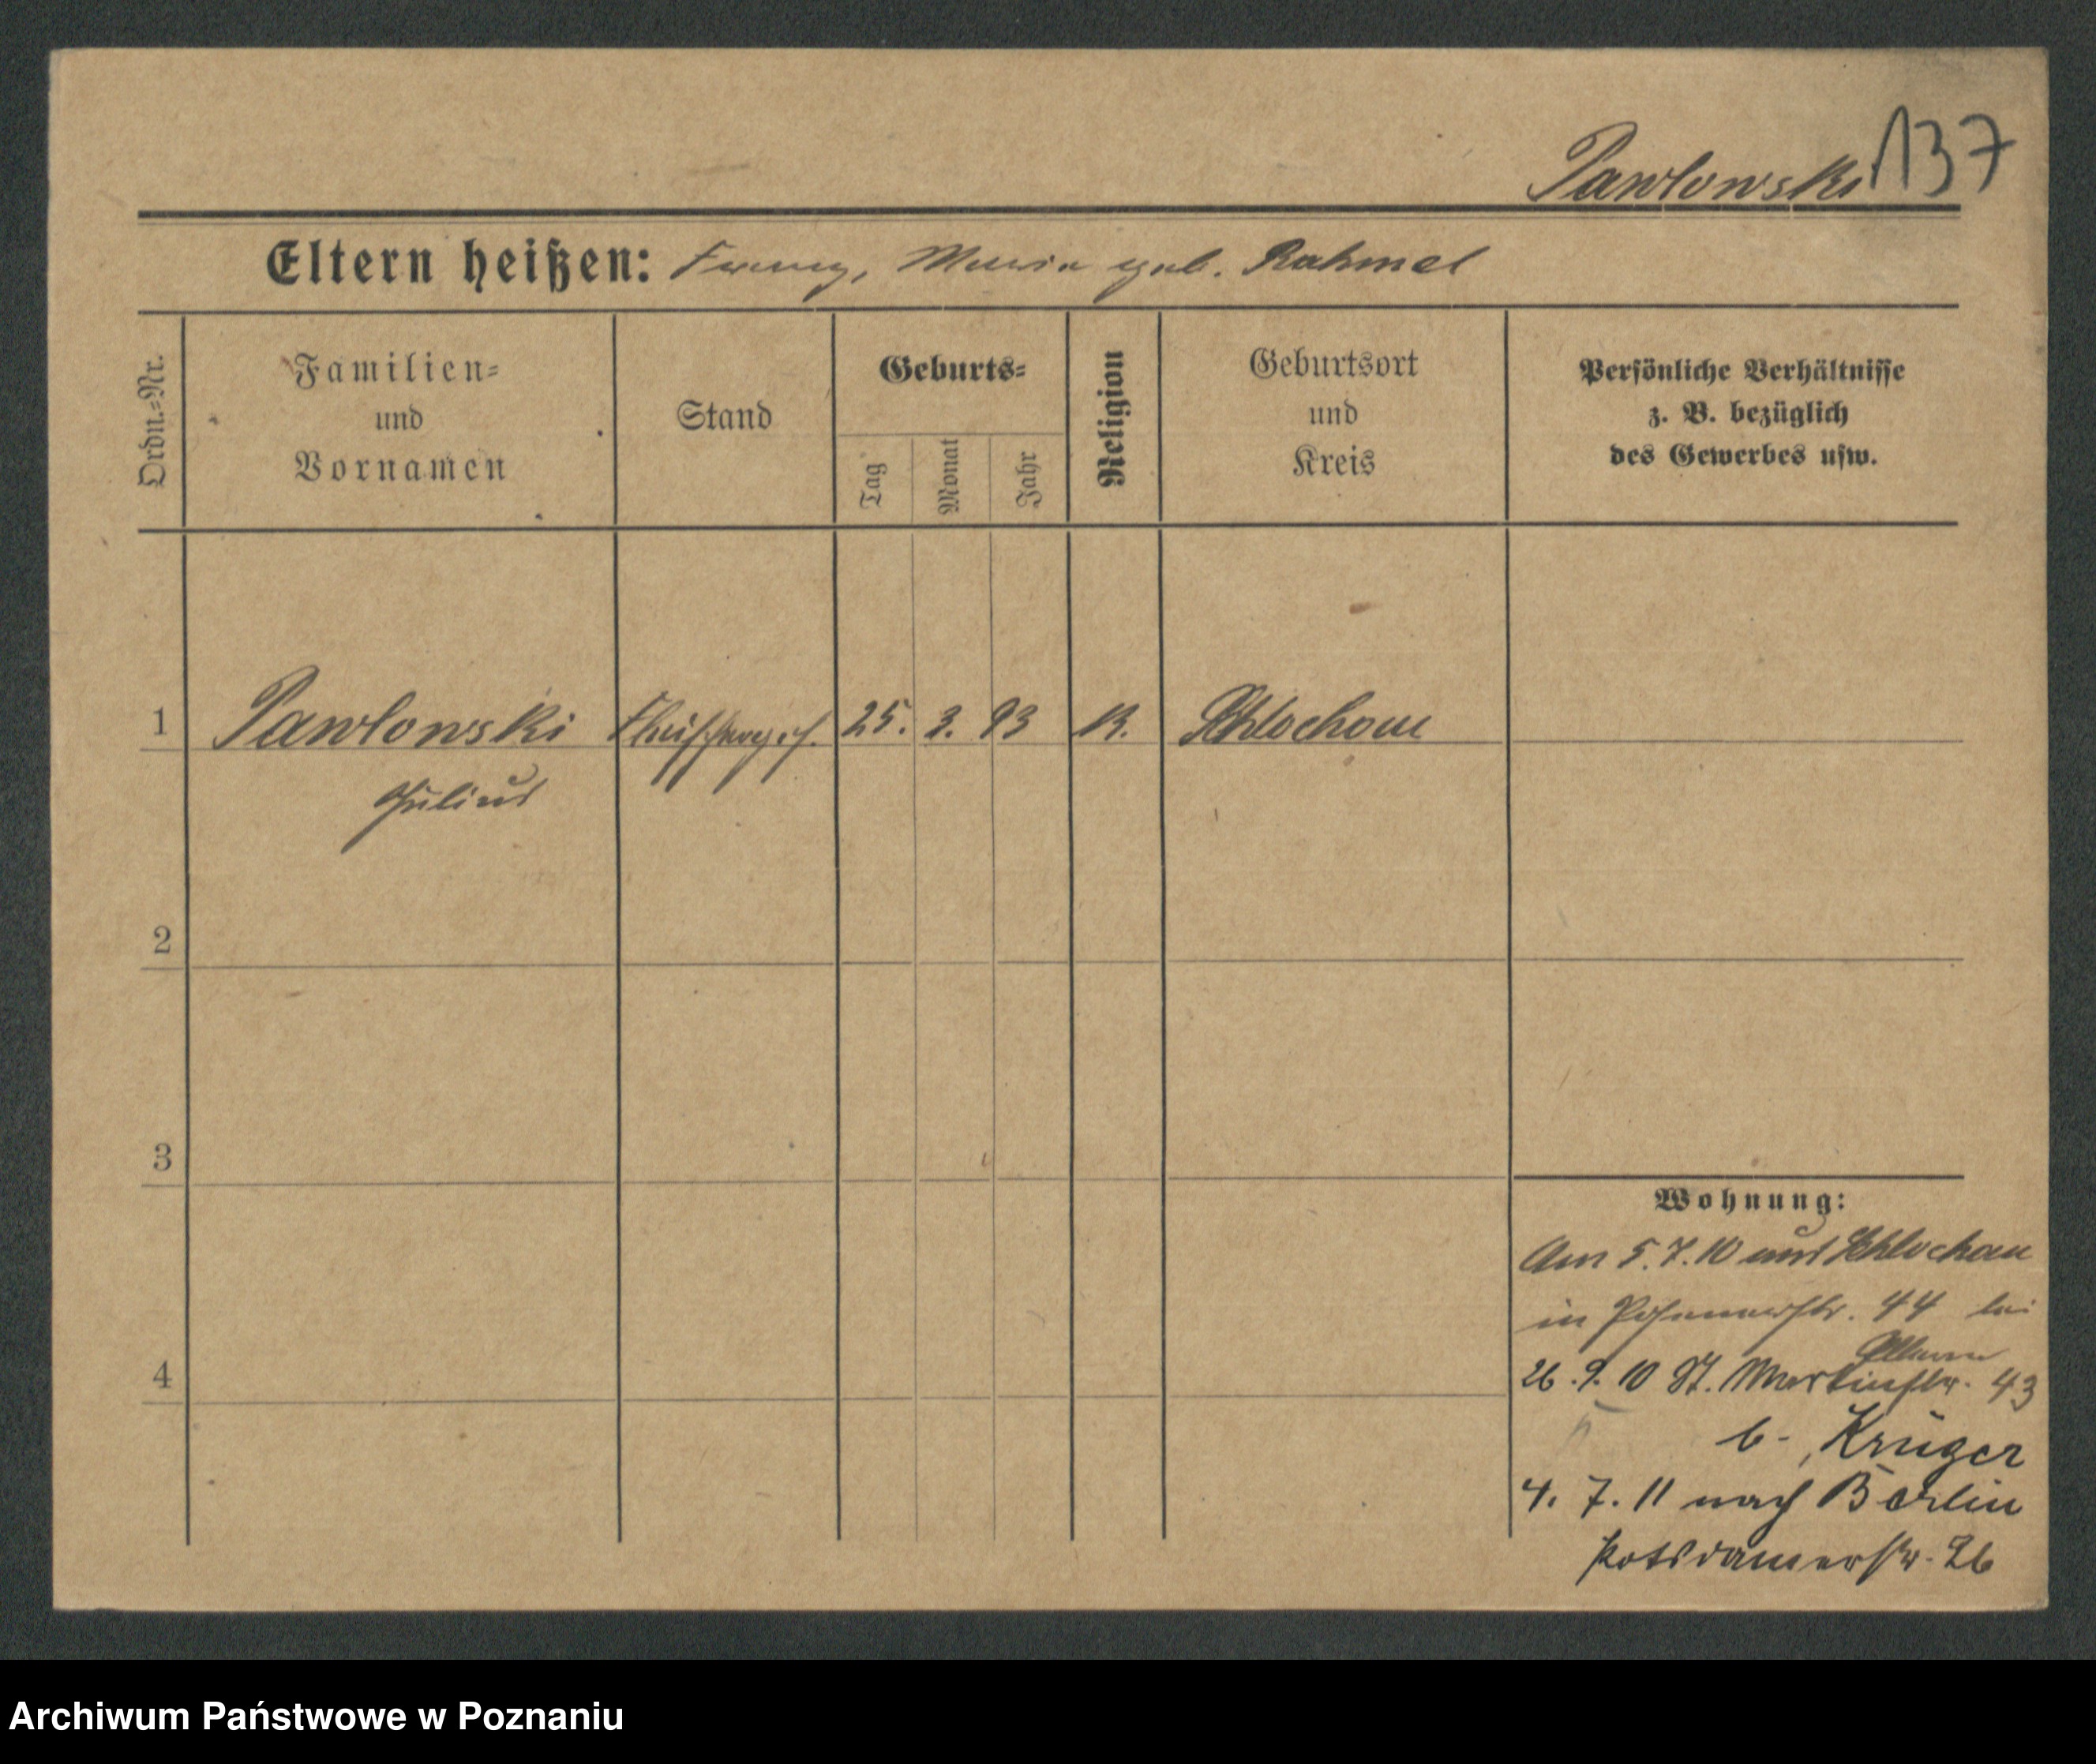 Pawlowski 137
Eltern heißen: Franz, Maria geb. Rahmel
Ordn.=Nr.
Familien=
und
Vornamen
Stand
Geburts=
Tag
Monat
Jahr
Religion
Geburtsort
und
Kreis
Persönliche Verhältnisse
z. B. bezüglich
des Gewerbes usw.
1 Pawlowski Fleischerges. 25. 3. 93 K. Schlochau
Julius
2
3
4
Wohnung:
Am 5.7.10 aus Schlochau
in Posenerstr. 44 bei
26.9.10 St. Martinstr. 43
b. Krüger
4. 7. 11 nach Berlin
Potsdamerstr. 26
Archiwum Państwowe w Poznaniu